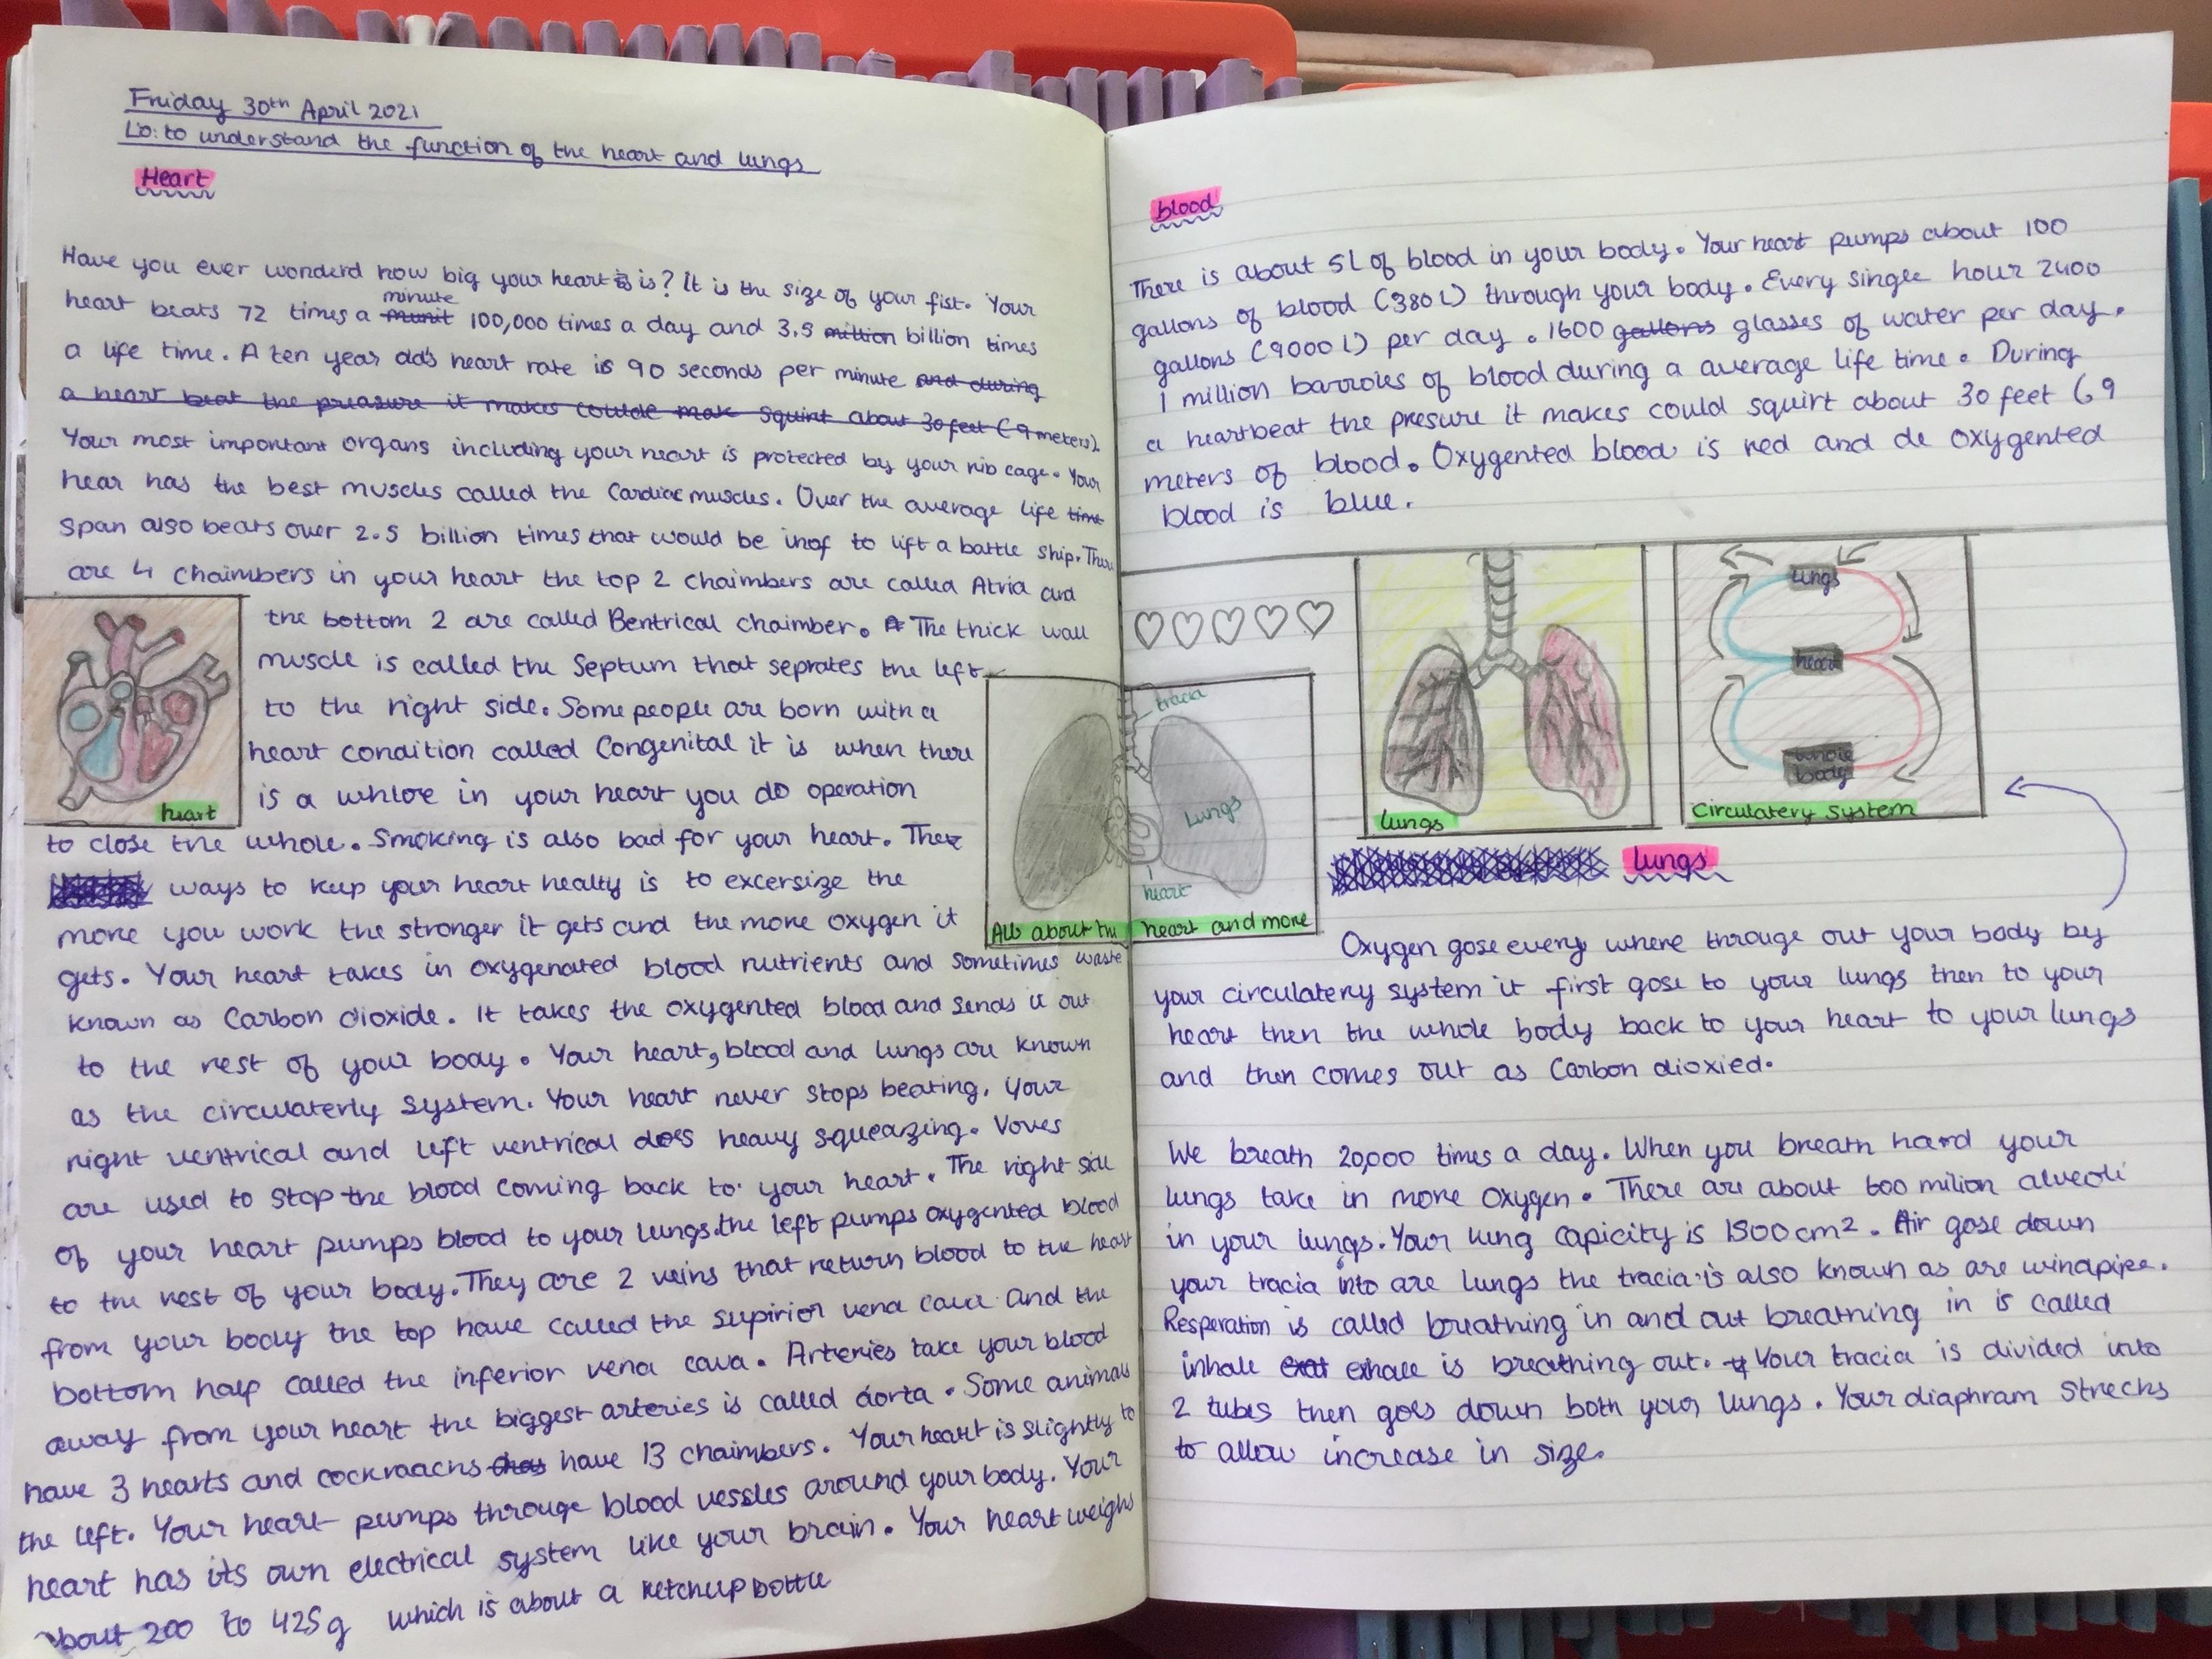 Friday 30th April 2021
L.o: to understand the function of the heart and lungs
Heart
Have you ever wonderd how big your heart is is? It is the size of your fist. Your
minute
heart beats 72 times a munit 100,000 times a day and 3.5 million billion times
a life time. A ten year old's heart rate is 90 seconds per minute and during
a heart beat the preasure it makes coulde mak squirt about 30 feet (9 meters).
Your most important organs including your heart is protected by your rib cage. Your
hear has the best muscles called the Cardiac muscles. Over the average life time
span also beats over 2.5 billion times that would be inof to lift a battle ship. There
are 4 chaimbers in your heart the top 2 chaimbers are called Atria and
the bottom 2 are called Bentrical chaimber. The thick wall
muscle is called the Septum that seprates the left
to the right side. Some people are born with a
heart condition called Congenital it is when there
is a whloe in your heart you do operation
to close the whole. Smoking is also bad for your heart. The
ways to keep your heart healty is to excersize the
more you work the stronger it gets and the more oxygen it
gets. Your heart takes in oxygenated blood nutrients and sometimes waste
known as Carbon dioxide. It takes the oxygented blood and sends it out
to the rest of your body. Your heart, blood and lungs are known
as the circulaterly system. Your heart never stops beating. Your
right ventrical and left ventrical does heavy squeazing. Voves
are used to stop the blood coming back to your heart. The right side
of your heart pumps blood to your lungs. the left pumps oxygented blood
to the rest of your body. They are 2 veins that return blood to the heart
from your body the top have called the supirior vena cava and the
bottom half called the inferior vena cava. Arteries take your blood
away from your heart the biggest arteries is called aorta. Some animals
have 3 hearts and cockraachs has have 13 chaimbers. Your heart is slightly to
the left. Your heart pumps througe blood vessles around your body. Your
heart has its own electrical system like your brain. Your heart weighs
about 200 to 425g which is about a ketchup bottle
heart
tracia
Lungs
heart
All about the heart and more
blood
There is about 5L of blood in your body. Your heart pumps about 100
gallons of blood (380L) through your body. Every single hour 2400
gallons (9000L) per day. 1600 gallons glasses of water per day.
1 million barroles of blood during a average life time. During
a heartbeat the presure it makes could squirt about 30 feet (9
meters of blood. Oxygented blood is red and de oxygented
blood is blue.
lungs
lungs
heart
whole
body
Circulatery system
lungs
Oxygen gose every where througe out your body by
your circulatery system it first gose to your lungs then to your
heart then the whole body back to your heart to your lungs
and then comes out as Carbon dioxied.
We breath 20,000 times a day. When you breath hard your
lungs take in more oxygen. There are about 600 milion alveoli
in your lungs. Your lung capicity is 1500cm2. Air gose down
your tracia into are lungs the tracia is also known as are windpipe.
Resperation is called breathing in and out breathing in is called
inhale exat exhale is breathing out. Your tracia is divided into
2 tubes then goes down both your lungs. Your diaphram strechs
to allow increase in size.